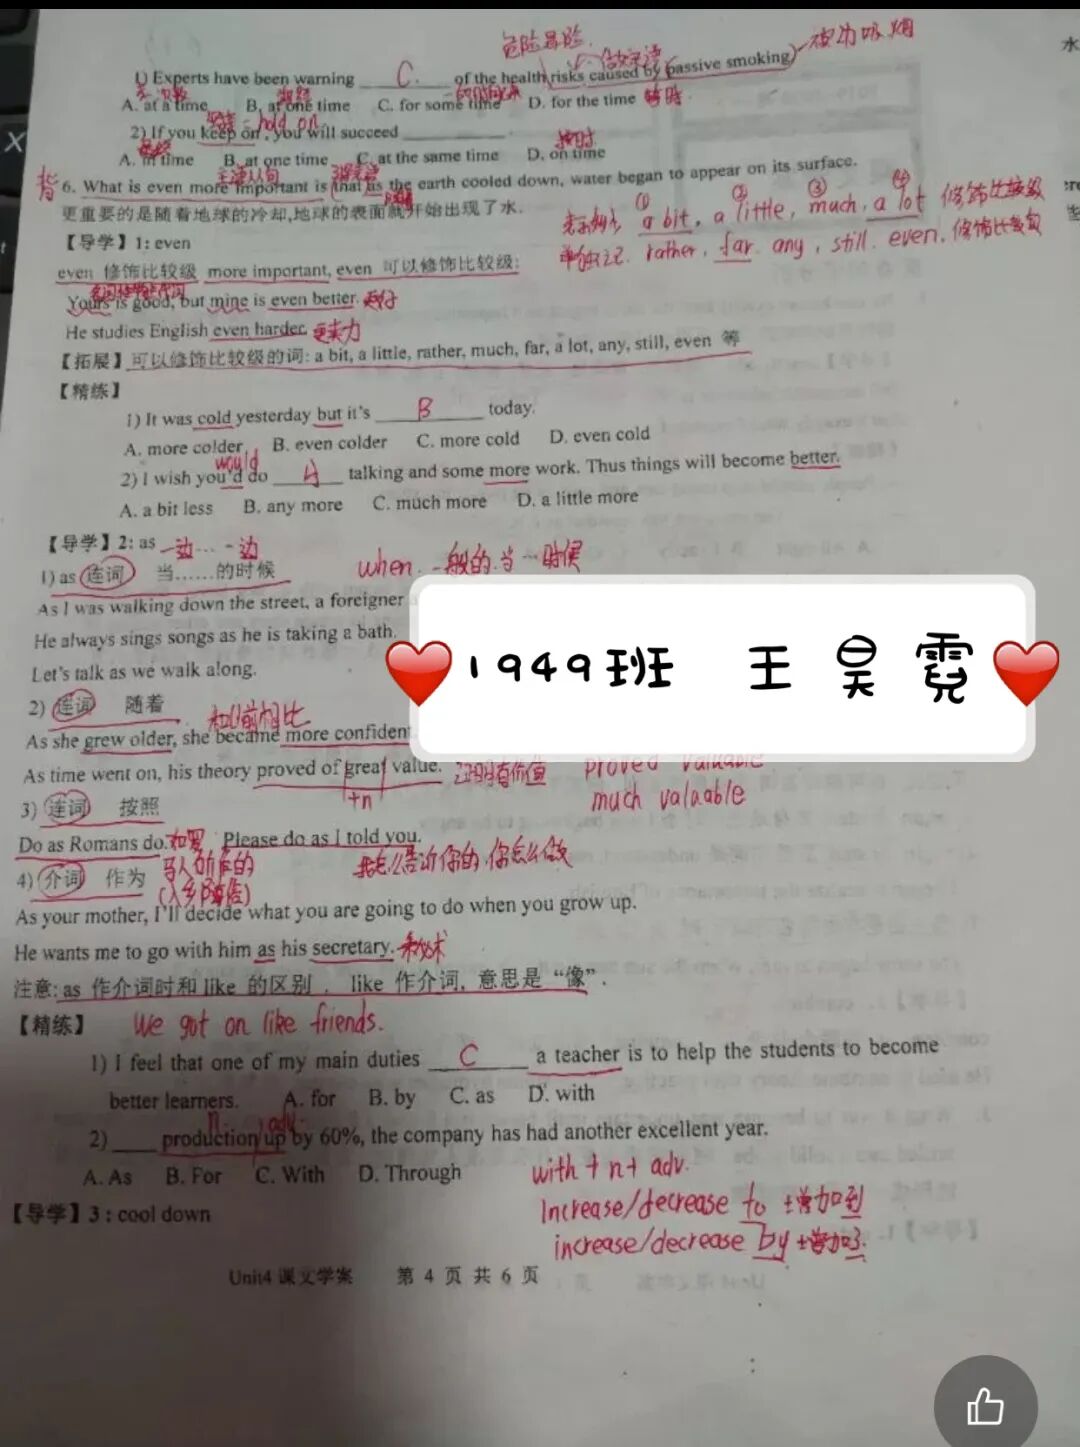 危险冒险.
被动吸烟
1) Experts have been warning C. of the health risks caused by passive smoking
A. at a time B. at one time C. for some time D. for the time 暂时
坚持 = hold on
2) If you keep on, you will succeed
按时
A. in time B. at one time C. at the same time D. on time
主语从句
背 6. What is even more important is that as the earth cooled down, water began to appear on its surface.
更重要的是随着地球的冷却,地球的表面就开始出现了水.
① ② ③ ④
a bit, a little, much, a lot 修饰比较级
rather, far any, still. even. 修饰比较级
【导学】1: even
even 修饰比较级 more important, even 可以修饰比较级:
Yours is good, but mine is even better. 更好
He studies English even harder. 更努力
【拓展】可以修饰比较级的词: a bit, a little, rather, much, far, a lot, any, still, even 等
【精练】
1) It was cold yesterday but it's B today.
A. more colder B. even colder C. more cold D. even cold
would
2) I wish you'd do A talking and some more work. Thus things will become better.
A. a bit less B. any more C. much more D. a little more
【导学】2: as 一边… 一边
1) as 连词 当……的时候 when. 一般的.当…时候
As I was walking down the street, a foreigner
He always sings songs as he is taking a bath.
Let's talk as we walk along.
❤️1949班 王 昊 霓❤️
2) 连词 随着
和以前相比
As she grew older, she became more confident
As time went on, his theory proved of great value. 证明有价值 proved valuable
+n much valuable
3) 连词 按照
Do as Romans do. 如罗 Please do as I told you.
马人所做的 我怎么告诉你的,你怎么做
4) 介词 作为 (入乡随俗)
As your mother, I'll decide what you are going to do when you grow up.
He wants me to go with him as his secretary.
注意: as 作介词时和 like 的区别 . like 作介词, 意思是 “像”.
【精练】 We got on like friends.
1) I feel that one of my main duties C a teacher is to help the students to become
better learners. A. for B. by C. as D. with
n adv.
2) production up by 60%, the company has had another excellent year.
A. As B. For C. With D. Through
with + n + adv.
【导学】3 : cool down
increase/decrease to 增加到
increase/decrease by 增加了
Unit4 课文学案 第 4 页 共 6 页